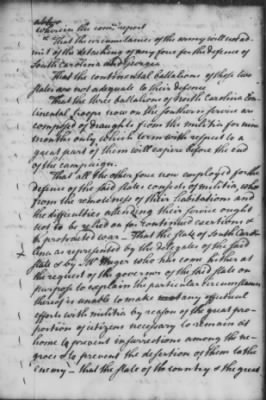 wherein the com.ee report
That the circumstances of the army will not ad-
mit of the detaching of any force for the defence of
South Carolina and Georgia
That the continental battalions of those two
states are not adequate to their defence
That the three battalions of North Carolina Con-
tinental troops now on the southern service are
composed of draughts from the militia for nine
months only, which term with respect to a
great part of them will expire before the end
of the campaign.
That all the other force now employed for the
defence of the said states consists of militia, who
from the remoteness of their habitations and
the difficulties attending their service ought
not to be relied on for continued exertions &
a protracted war - That the state of South Caro-
lina as represented by the delegates of the said
state & by Mr Huger who has come hither at
the request of the governor of the said state on
purpose to explain the particular circumstances
thereof is unable to make any effectual
efforts with militia by reason of the great pro-
portion of citizens necessary to remain at
home to prevent insurrections among the ne-
groes & to prevent the desertion of them to the
enemy - that the state of the country & the great